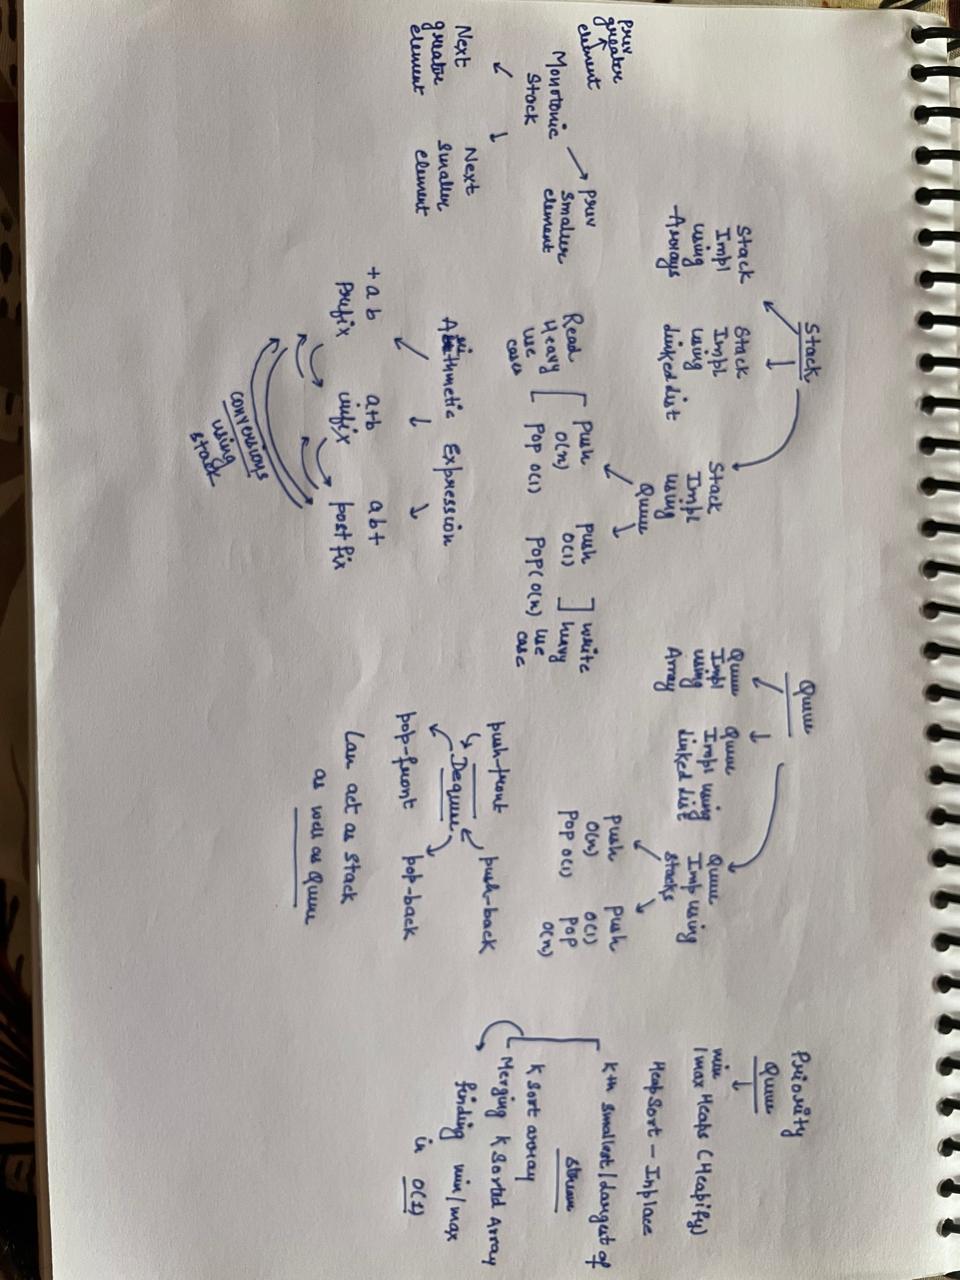 Stack
Stack
Impl
using
-Arrays
Stack
Impl
using
Linked List
Stack
Impl
using
Queue
push
O(n)
pop O(1)
Read
Heavy
use
cases
push
O(1)
pop( O(n)
write
heavy
use
case
prev
greater
element
Monotonic
Stack
prev
smaller
element
Next
greater
element
Next
smaller
element
Arithmetic Expression
+ a b
prefix
a+b
infix
a b +
postfix
conversions
using
stack
Queue
Queue
Impl
using
Array
Queue
Impl using
Linked List
Queue
Imp using
stacks
push
O(n)
pop O(1)
push
O(1)
pop
O(n)
push-front
push-back
Dequeue
pop-front
pop-back
Can act as Stack
as well as Queue
Priority
Queue
min
/max Heaps (Heapify)
HeapSort - Inplace
Kth smallest/largest of
stream
K sort array
Merging K Sorted Array
finding min/max
in O(1)